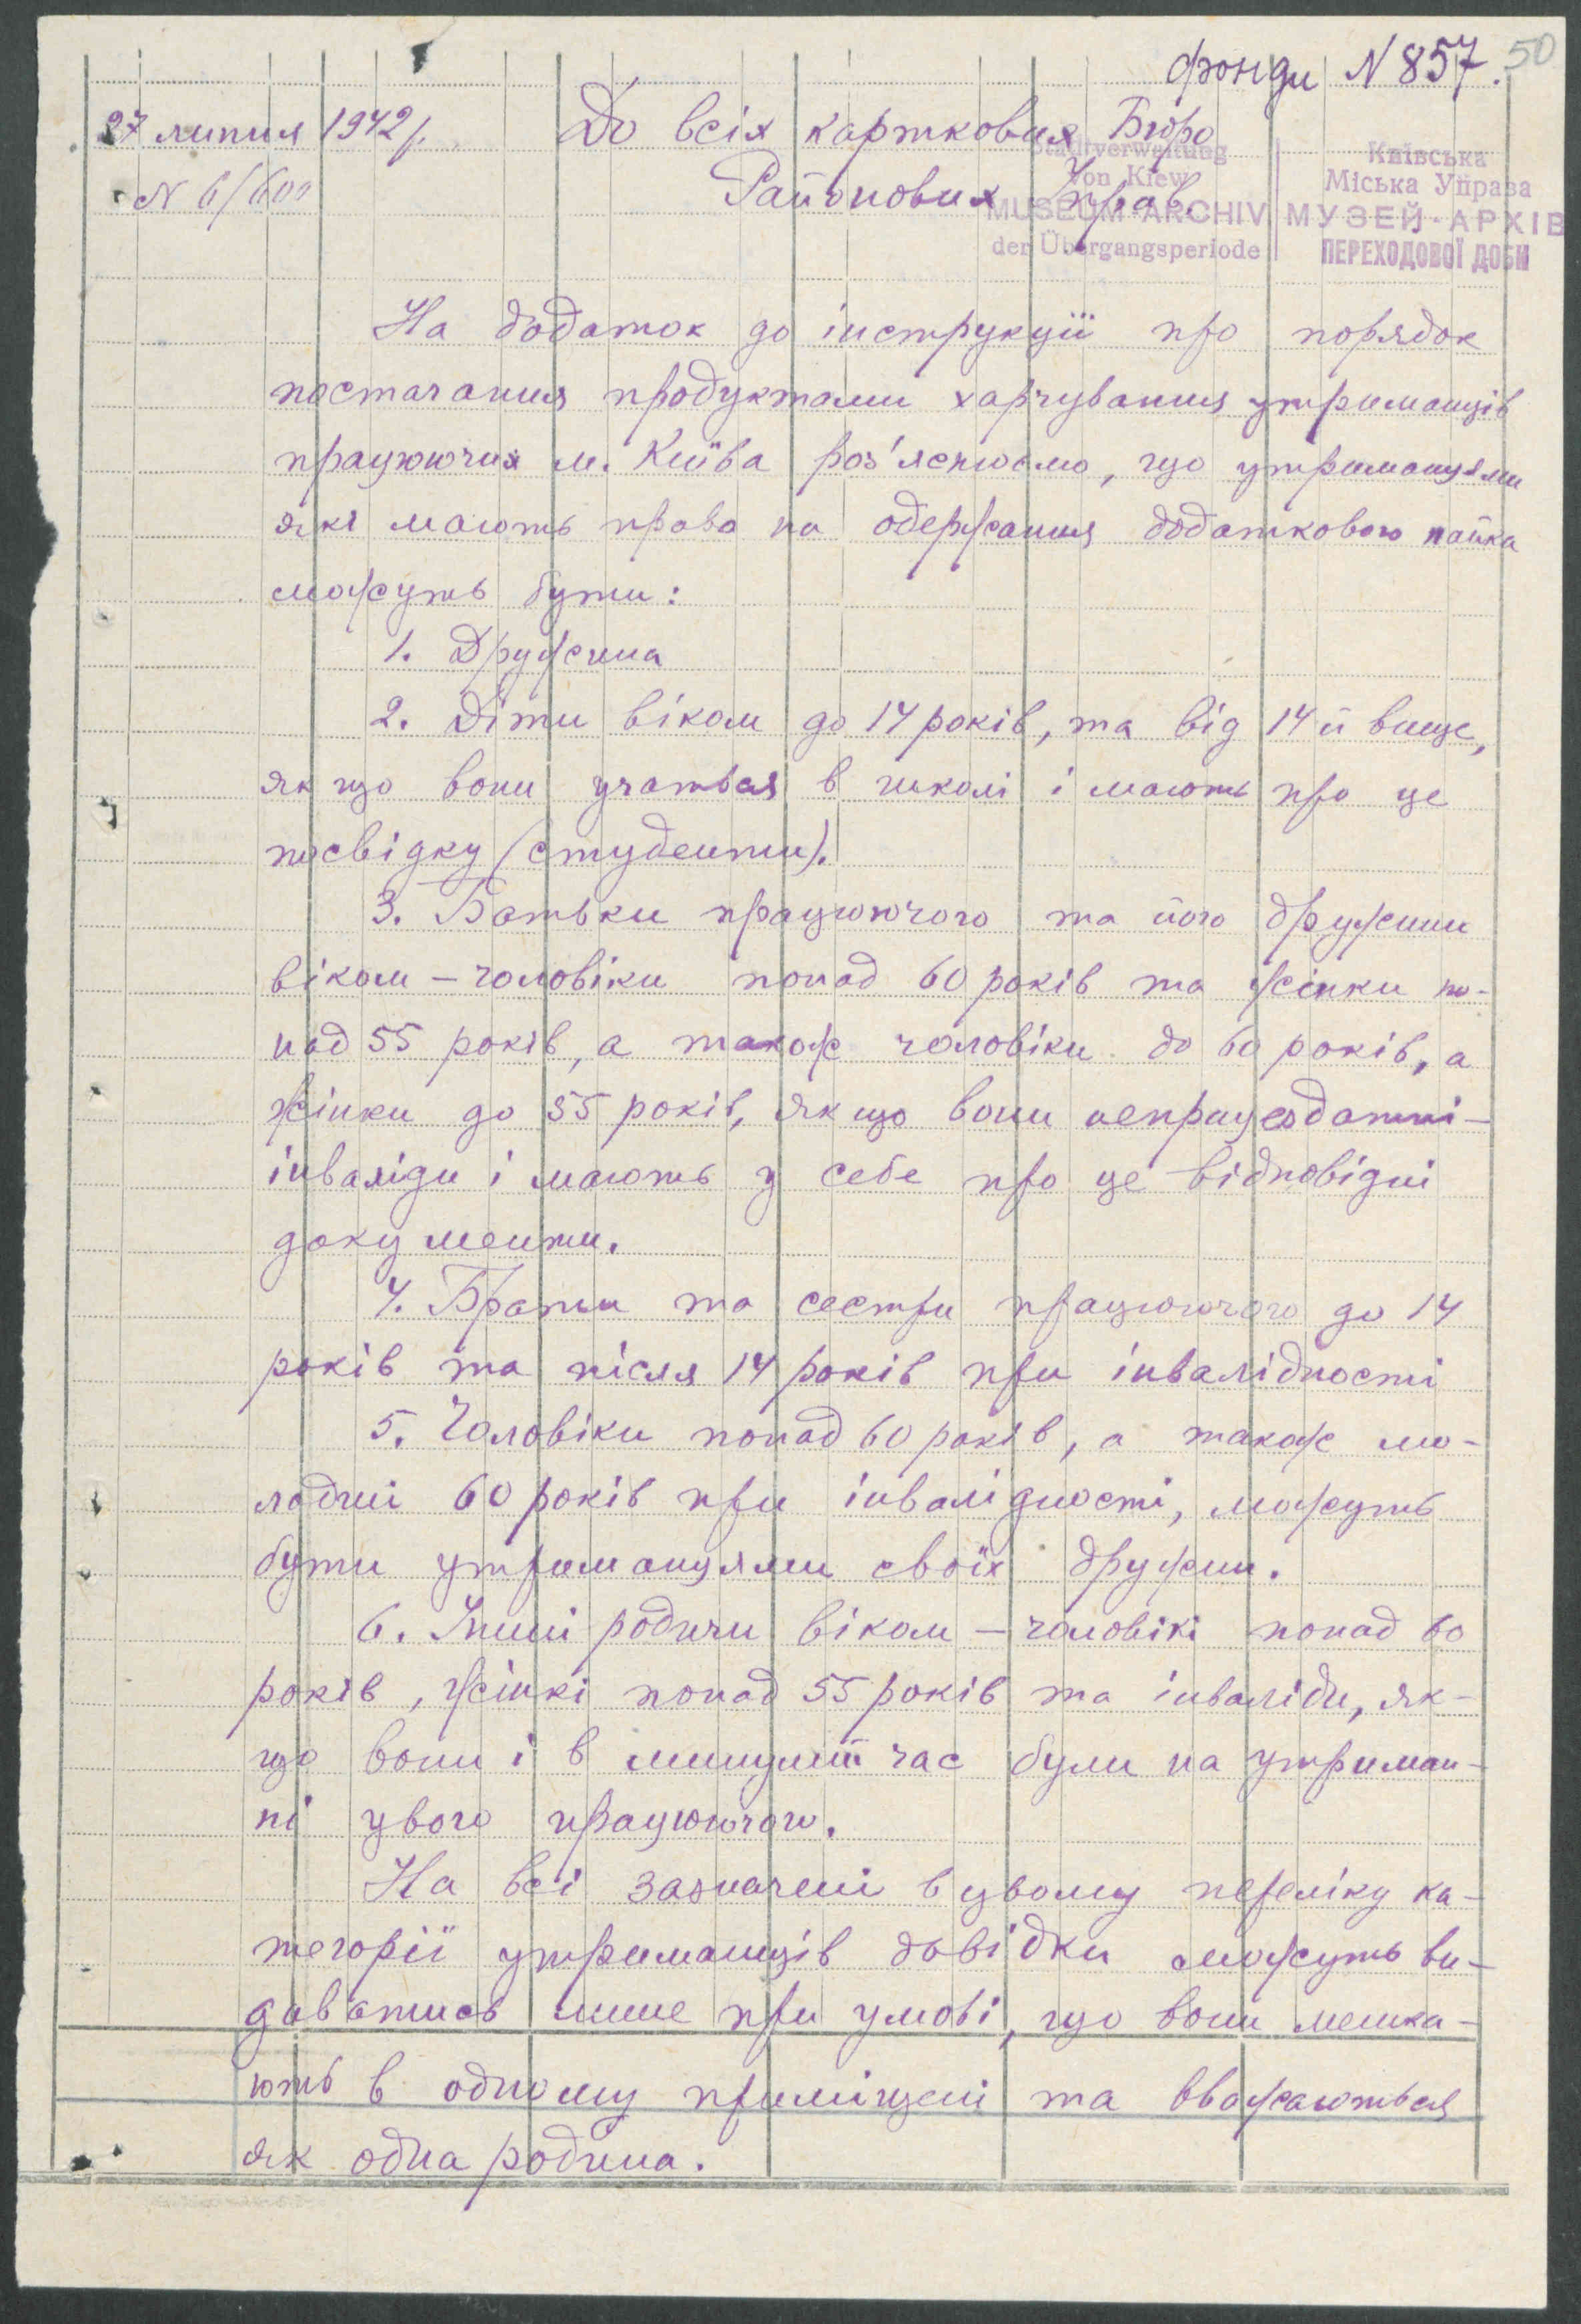 фонди N 857. 50
27 липня 1942 р. До всіх карткових Бюро
N 6/601 Районових Управ.
Stadtverwaltung
von Kiew
MUSEUM-ARCHIV
der Übergangsperiode
Київська
Міська Управа
МУЗЕЙ-АРХІВ
ПЕРЕХОДОВОЇ ДОБИ
На додаток до інструкції про порядок
постачання продуктами харчування утриманців
працюючих м. Київа роз'яснюємо, що утриманцями
які мають право на одержання додаткового пайка
можуть бути:
1. Дружина
2. Діти віком до 14 років, та від 14 й вище,
як що вони учаться в школі і мають про це
посвідку (студенти).
3. Батьки працюючого та його дружини
віком – чоловіки понад 60 років та жінки по-
над 55 років, а також чоловіки до 60 років, а
жінки до 55 років, як що вони непрацездатні –
інваліди і мають у себе про це відповідні
документи.
4. Брати та сестри працюючого до 14
років та після 14 років при інвалідності
5. Чоловіки понад 60 років, а також мо-
лодші 60 років при інвалідності, можуть
бути утриманцями своїх дружин.
6. Інши родичи віком – чоловікі понад 60
років, жінкі понад 55 років та інваліди, як-
що вони і в минулий час були на утриман-
ні цього працюючого.
На всі зазначені в цьому переліку ка-
тегорії утриманців довідки можуть ви-
даватись лише при умові, що вони мешка-
ють в одному приміщені та вважаються
як одна родина.